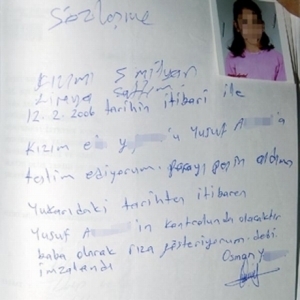 Sözleşme
Kızımı 5 milyar
Liraya sattım
12.2.2006 tarihin itibari ile
Kızım e y 'u Yusuf A 'a
teslim ediyorum. parayı peşin aldım
Yukarıdaki tarihten itibaren
Yusuf A in kontrolunda olacaktır
baba olarak rıza gösteriyorum. dedi.
imzalandı Osman Y